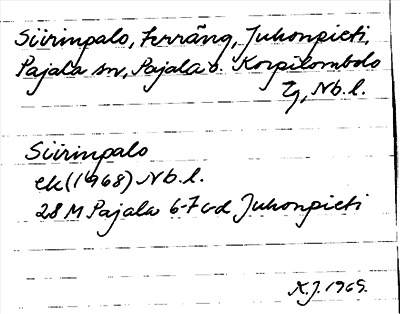 Siirinpalo, terräng, Juhonpieti,
Pajala sn, Pajala o. Korpilombolo
tg, Nb.l.
Siirinpalo
ek (1968) Nb.l.
28 M Pajala 6-7 c-d Juhonpieti
K.J. 1969.